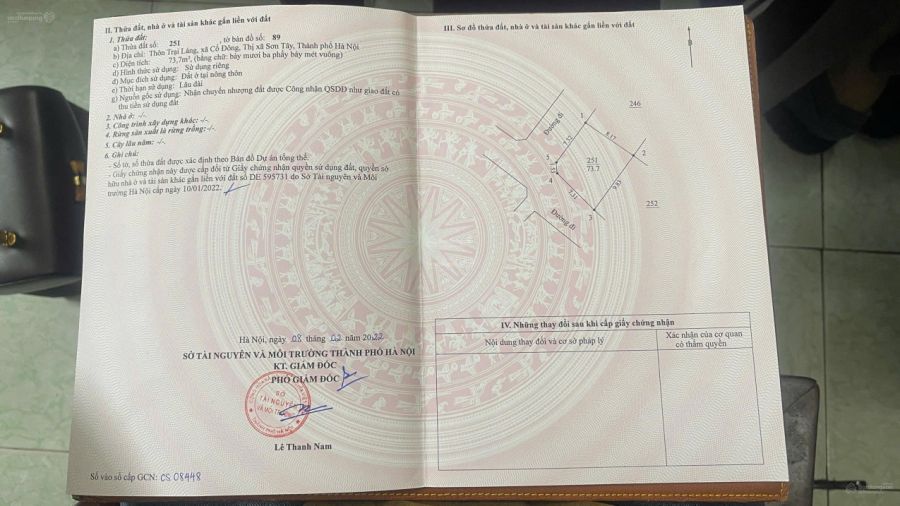 II. Thửa đất, nhà ở và tài sản khác gắn liền với đất
1. Thửa đất:
a) Thửa đất số: 251 , tờ bản đồ số: 89
b) Địa chỉ: Thôn Trại Láng, xã Cổ Đông, Thị xã Sơn Tây, Thành phố Hà Nội
c) Diện tích: 73,7m², (bằng chữ: bảy mươi ba phẩy bảy mét vuông)
d) Hình thức sử dụng: Sử dụng riêng
đ) Mục đích sử dụng: Đất ở tại nông thôn
e) Thời hạn sử dụng: Lâu dài
g) Nguồn gốc sử dụng: Nhận chuyển nhượng đất được Công nhận QSDĐ như giao đất có
thu tiền sử dụng đất
2. Nhà ở: -/-.
3. Công trình xây dựng khác: -/-.
4. Rừng sản xuất là rừng trồng: -/-.
5. Cây lâu năm: -/-.
6. Ghi chú:
- Số tờ, số thửa đất được xác định theo Bản đồ Dự án tổng thể.
- Giấy chứng nhận này được cấp đổi từ Giấy chứng nhận quyền sử dụng đất, quyền sở
hữu nhà ở và tài sản khác gắn liền với đất số DE 595731 do Sở Tài nguyên và Môi
trường Hà Nội cấp ngày 10/01/2022.
Hà Nội, ngày 08 tháng 02 năm 2022
SỞ TÀI NGUYÊN VÀ MÔI TRƯỜNG THÀNH PHỐ HÀ NỘI
KT. GIÁM ĐỐC
PHÓ GIÁM ĐỐC
SỞ
TÀI NGUYÊN
VÀ MÔI TRƯỜNG
THÀNH PHỐ HÀ NỘI
Lê Thanh Nam
Số vào sổ cấp GCN: CS 08448
III. Sơ đồ thửa đất, nhà ở và tài sản khác gắn liền với đất
B
246
Đường đi
1
7.52
8.17
2
5
251
73.7
4
5.11
9.83
3
252
Đường đi
IV. Những thay đổi sau khi cấp giấy chứng nhận
Nội dung thay đổi và cơ sở pháp lý
Xác nhận của cơ quan
có thẩm quyền